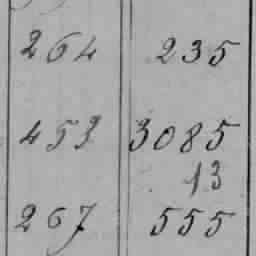 264 235
453 3085
13
267 555